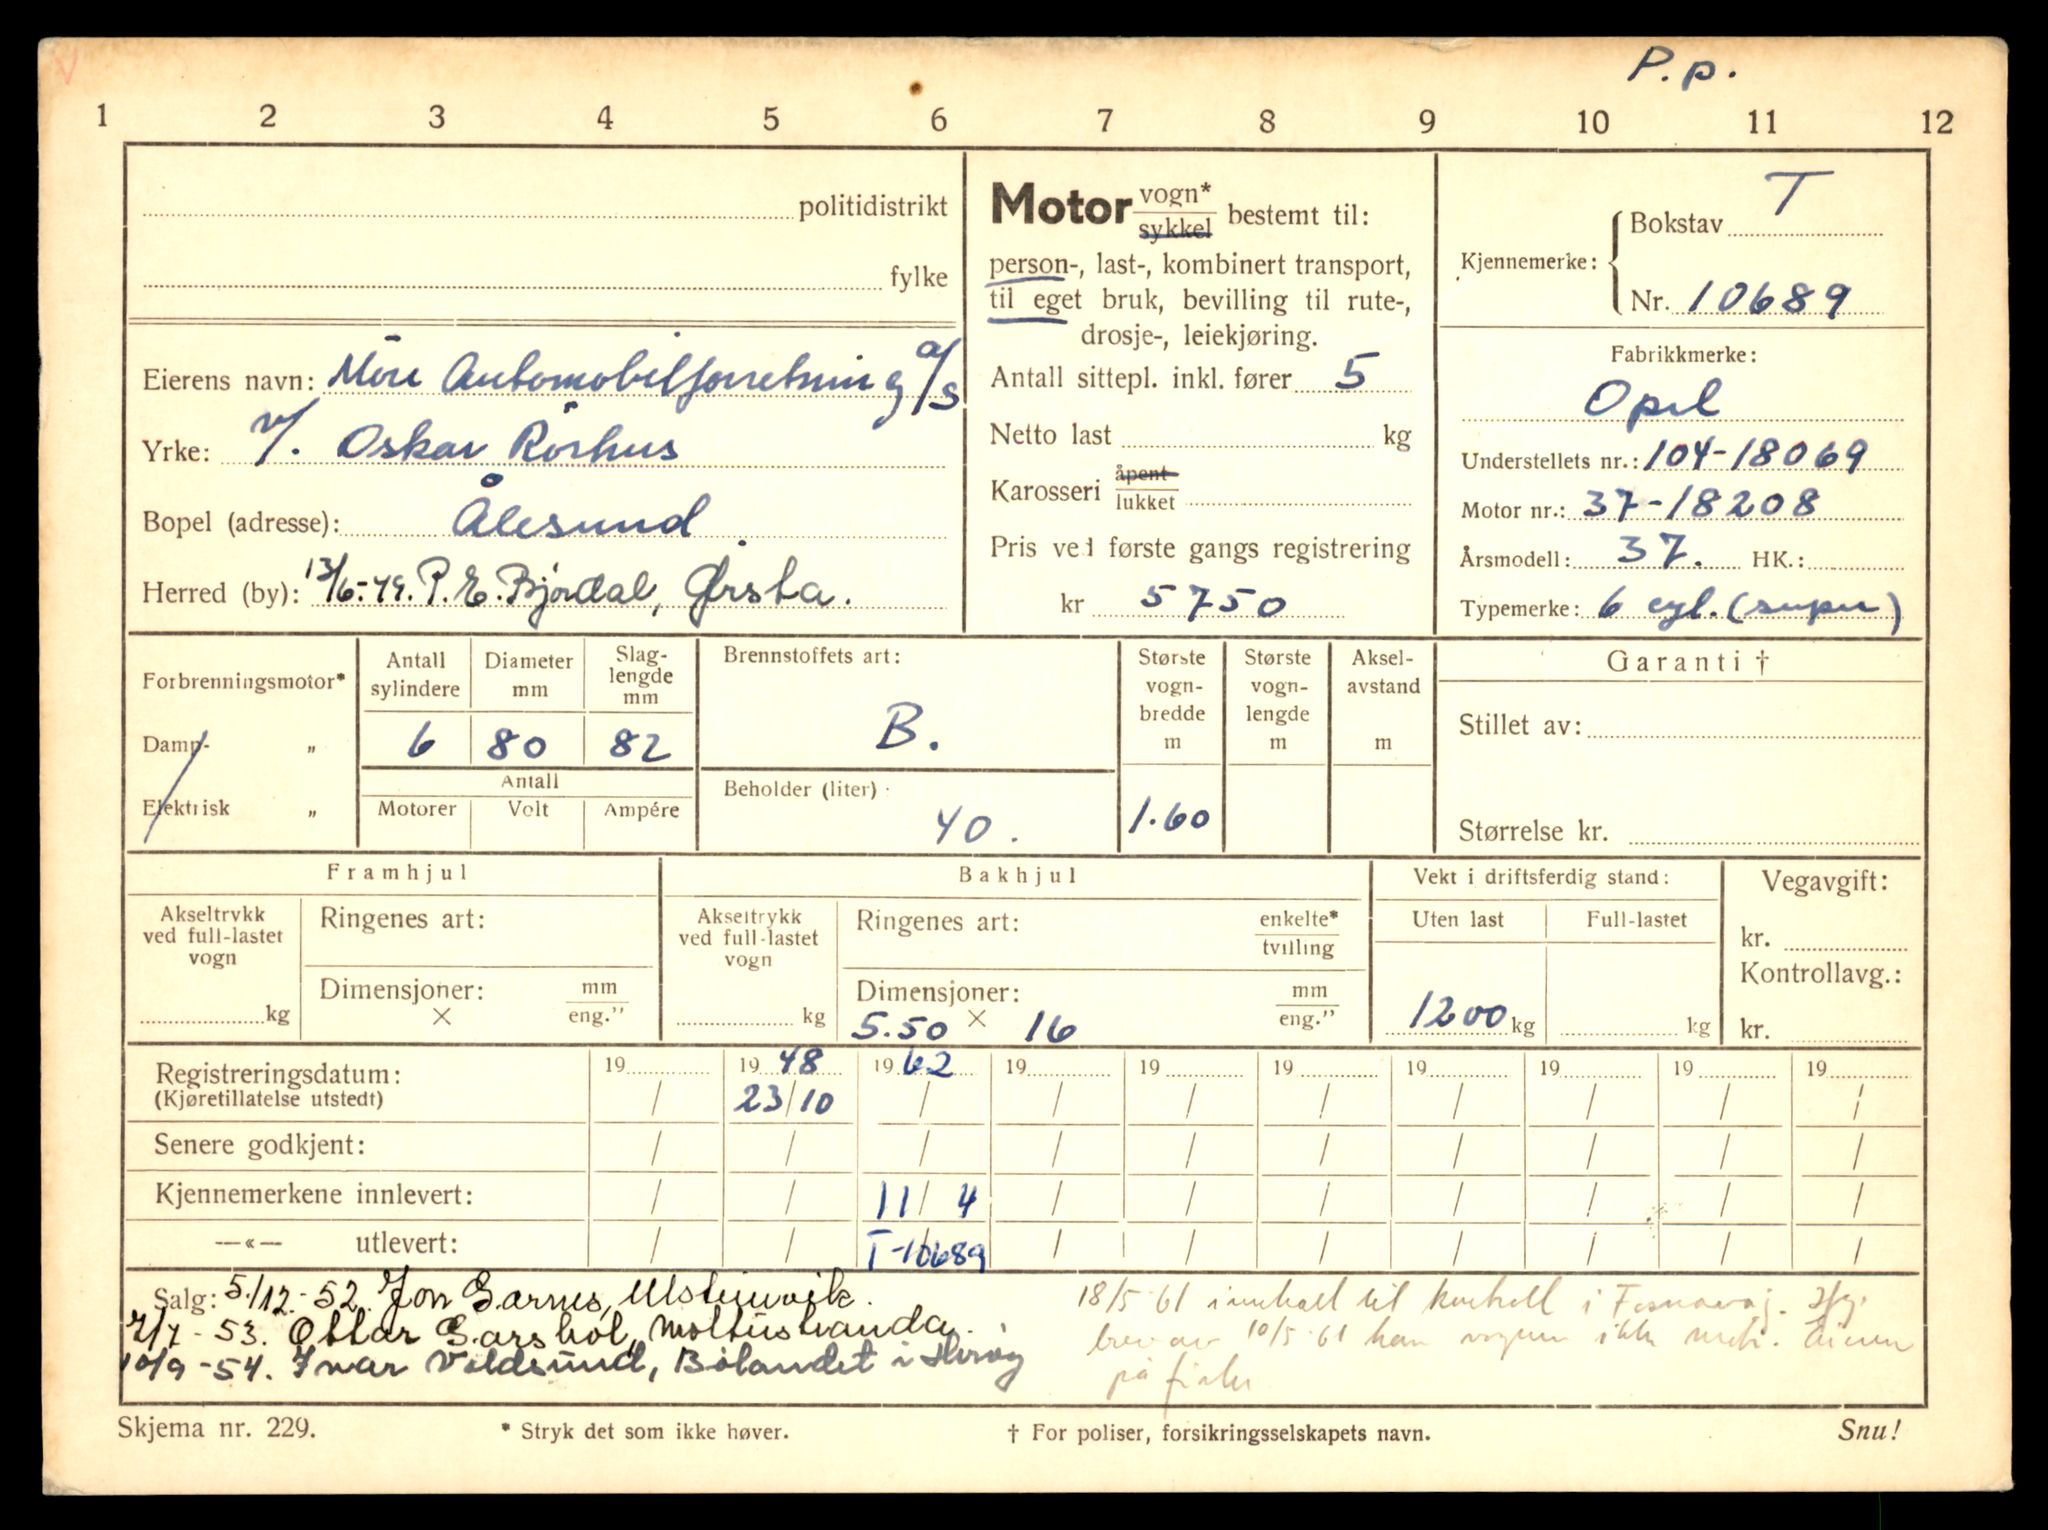 P.p.
1 2 3 4 5 6 7 8 9 10 11 12
politidistrikt
fylke
Eierens navn: Möre Automobilforretning a/s
Yrke: v/. Oskar Rörhus
Bopel (adresse): Ålesund.
Herred (by): 13/6-49. P. E. Bjørdal, Ørsta.
Motor vogn* / sykkel bestemt til:
person-, last-, kombinert transport,
til eget bruk, bevilling til rute-,
drosje-, leiekjøring.
Antall sittepl. inkl. fører 5
Netto last kg
Karosseri åpent / lukket
Pris ved første gangs registrering
kr 5750
Kjennemerke: Bokstav T
Nr. 10689
Fabrikkmerke:
Opel
Understellets nr.: 104-18069
Motor nr.: 37-18208
Årsmodell: 37. HK.:
Typemerke: 6 cyl. (super)
Forbrenningsmotor*
Damp- „
Elektrisk „
Antall sylindere Diameter mm Slag-lengde mm
6 80 82
Antall
Motorer Volt Ampére
Brennstoffets art:
B.
Beholder (liter)
40.
Største vogn-bredde m Største vogn-lengde m Aksel-avstand m
1.60
Garanti †
Stillet av:
Størrelse kr.
Framhjul
Akseltrykk ved full-lastet vogn
kg
Ringenes art:
Dimensjoner: mm / eng."
×
Bakhjul
Akseltrykk ved full-lastet vogn
kg
Ringenes art: enkelte* / tvilling
Dimensjoner: mm / eng."
5.50 × 16
Vekt i driftsferdig stand:
Uten last Full-lastet
1200 kg kg
Vegavgift:
kr.
Kontrollavg.:
kr.
Registreringsdatum: 19 19 48 19 62 19 19 19 19 19 19 19
(Kjøretillatelse utstedt) / 23/10 / / / / / / / /
Senere godkjent: / / / / / / / / / /
Kjennemerkene innlevert: / / 11/4 / / / / / / /
—«— utlevert: / / T-10689 / / / / / / /
Salg: 5/12-52. Jon Garnes, Ulsteinvik.
7/7-53. Ottar Garshol, Moltustranda.
10/9-54. Ivar Voldsund, Bølandet i Herøy
18/5-61 innkalt til kontroll i Fosnavåg. Ifg.
brev av 10/5-61 kan vognen ikke møte. Eieren
på fiske
Skjema nr. 229.
* Stryk det som ikke høver.
† For poliser, forsikringsselskapets navn.
Snu!